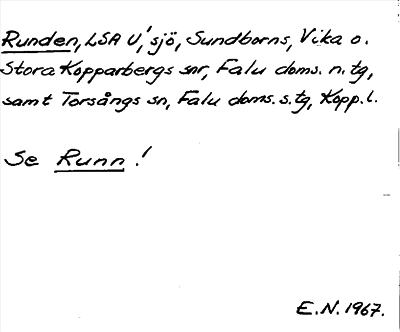 Runden, LSA U', sjö, Sundborns, Vika o.
Stora Kopparbergs snr, Falu doms. n. tg,
samt Torsångs sn, Falu doms. s. tg, Kopp. l.
Se Runn !
E.N. 1967.